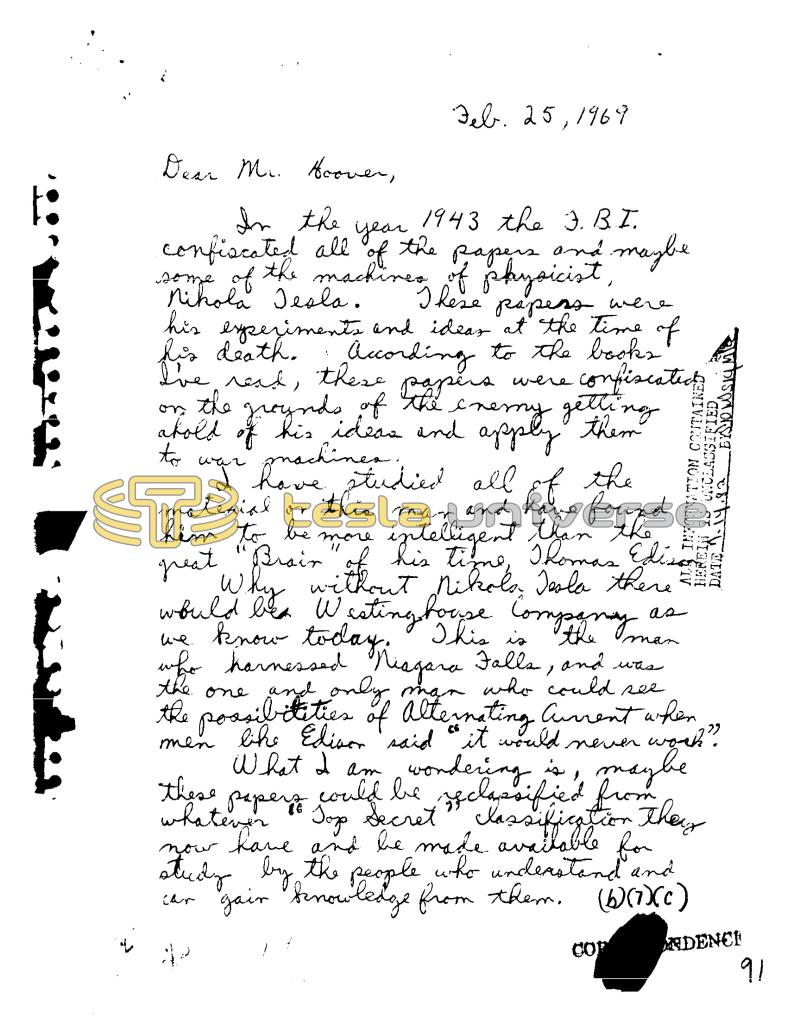 Feb. 25, 1969
Dear Mr. Hoover,
In the year 1943 the F.B.I.
confiscated all of the papers and maybe
some of the machines of physicist,
Nikola Tesla. These papers were
his experiments and ideas at the time of
his death. According to the books
I've read, these papers were confiscated
on the grounds of the enemy getting
ahold of his ideas and apply them
to war machines.
I have studied all of the
material on this man and have found
him to be more intelligent than the
great "Brain" of his time, Thomas Edison
Why without Nikola Tesla there
would be Westinghouse Company as
we know today. This is the man
who harnessed Niagara Falls, and was
the one and only man who could see
the possibilities of Alternating Current when
men like Edison said "it would never work".
What I am wondering is, maybe
these papers could be reclassified from
whatever "Top Secret" classification they
now have and be made available for
study by the people who understand and
can gain knowledge from them. (b)(7)(c)
ALL INFORMATION CONTAINED
HEREIN IS UNCLASSIFIED
DATE BY
tesla universe
91